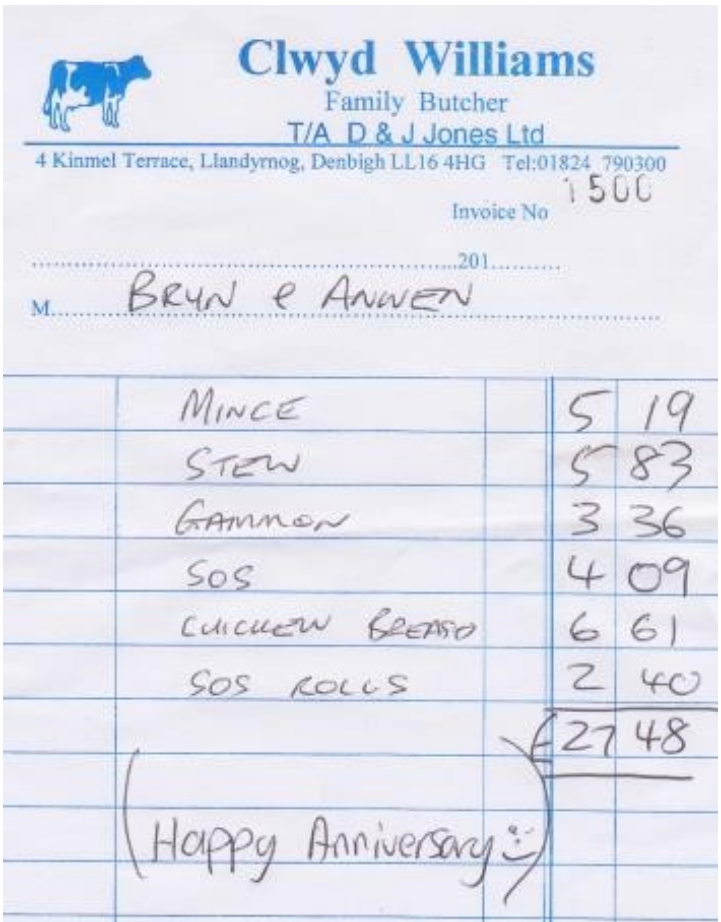 Clwyd Williams
Family Butcher
T/A D & J Jones Ltd
4 Kinmel Terrace, Llandyrnog, Denbigh LL16 4HG Tel:01824 790300
Invoice No 1500
........................................................201..........
M......BRYN & ANWEN
MINCE 5 19
STEW 5 83
GAMMON 3 36
SOS 4 09
CHICKEN BREAST 6 61
SOS ROLLS 2 40
£27 48
(Happy Anniversary :-)